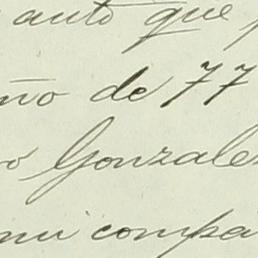 auto que
ño de 77
o Gonzalez
mi compa